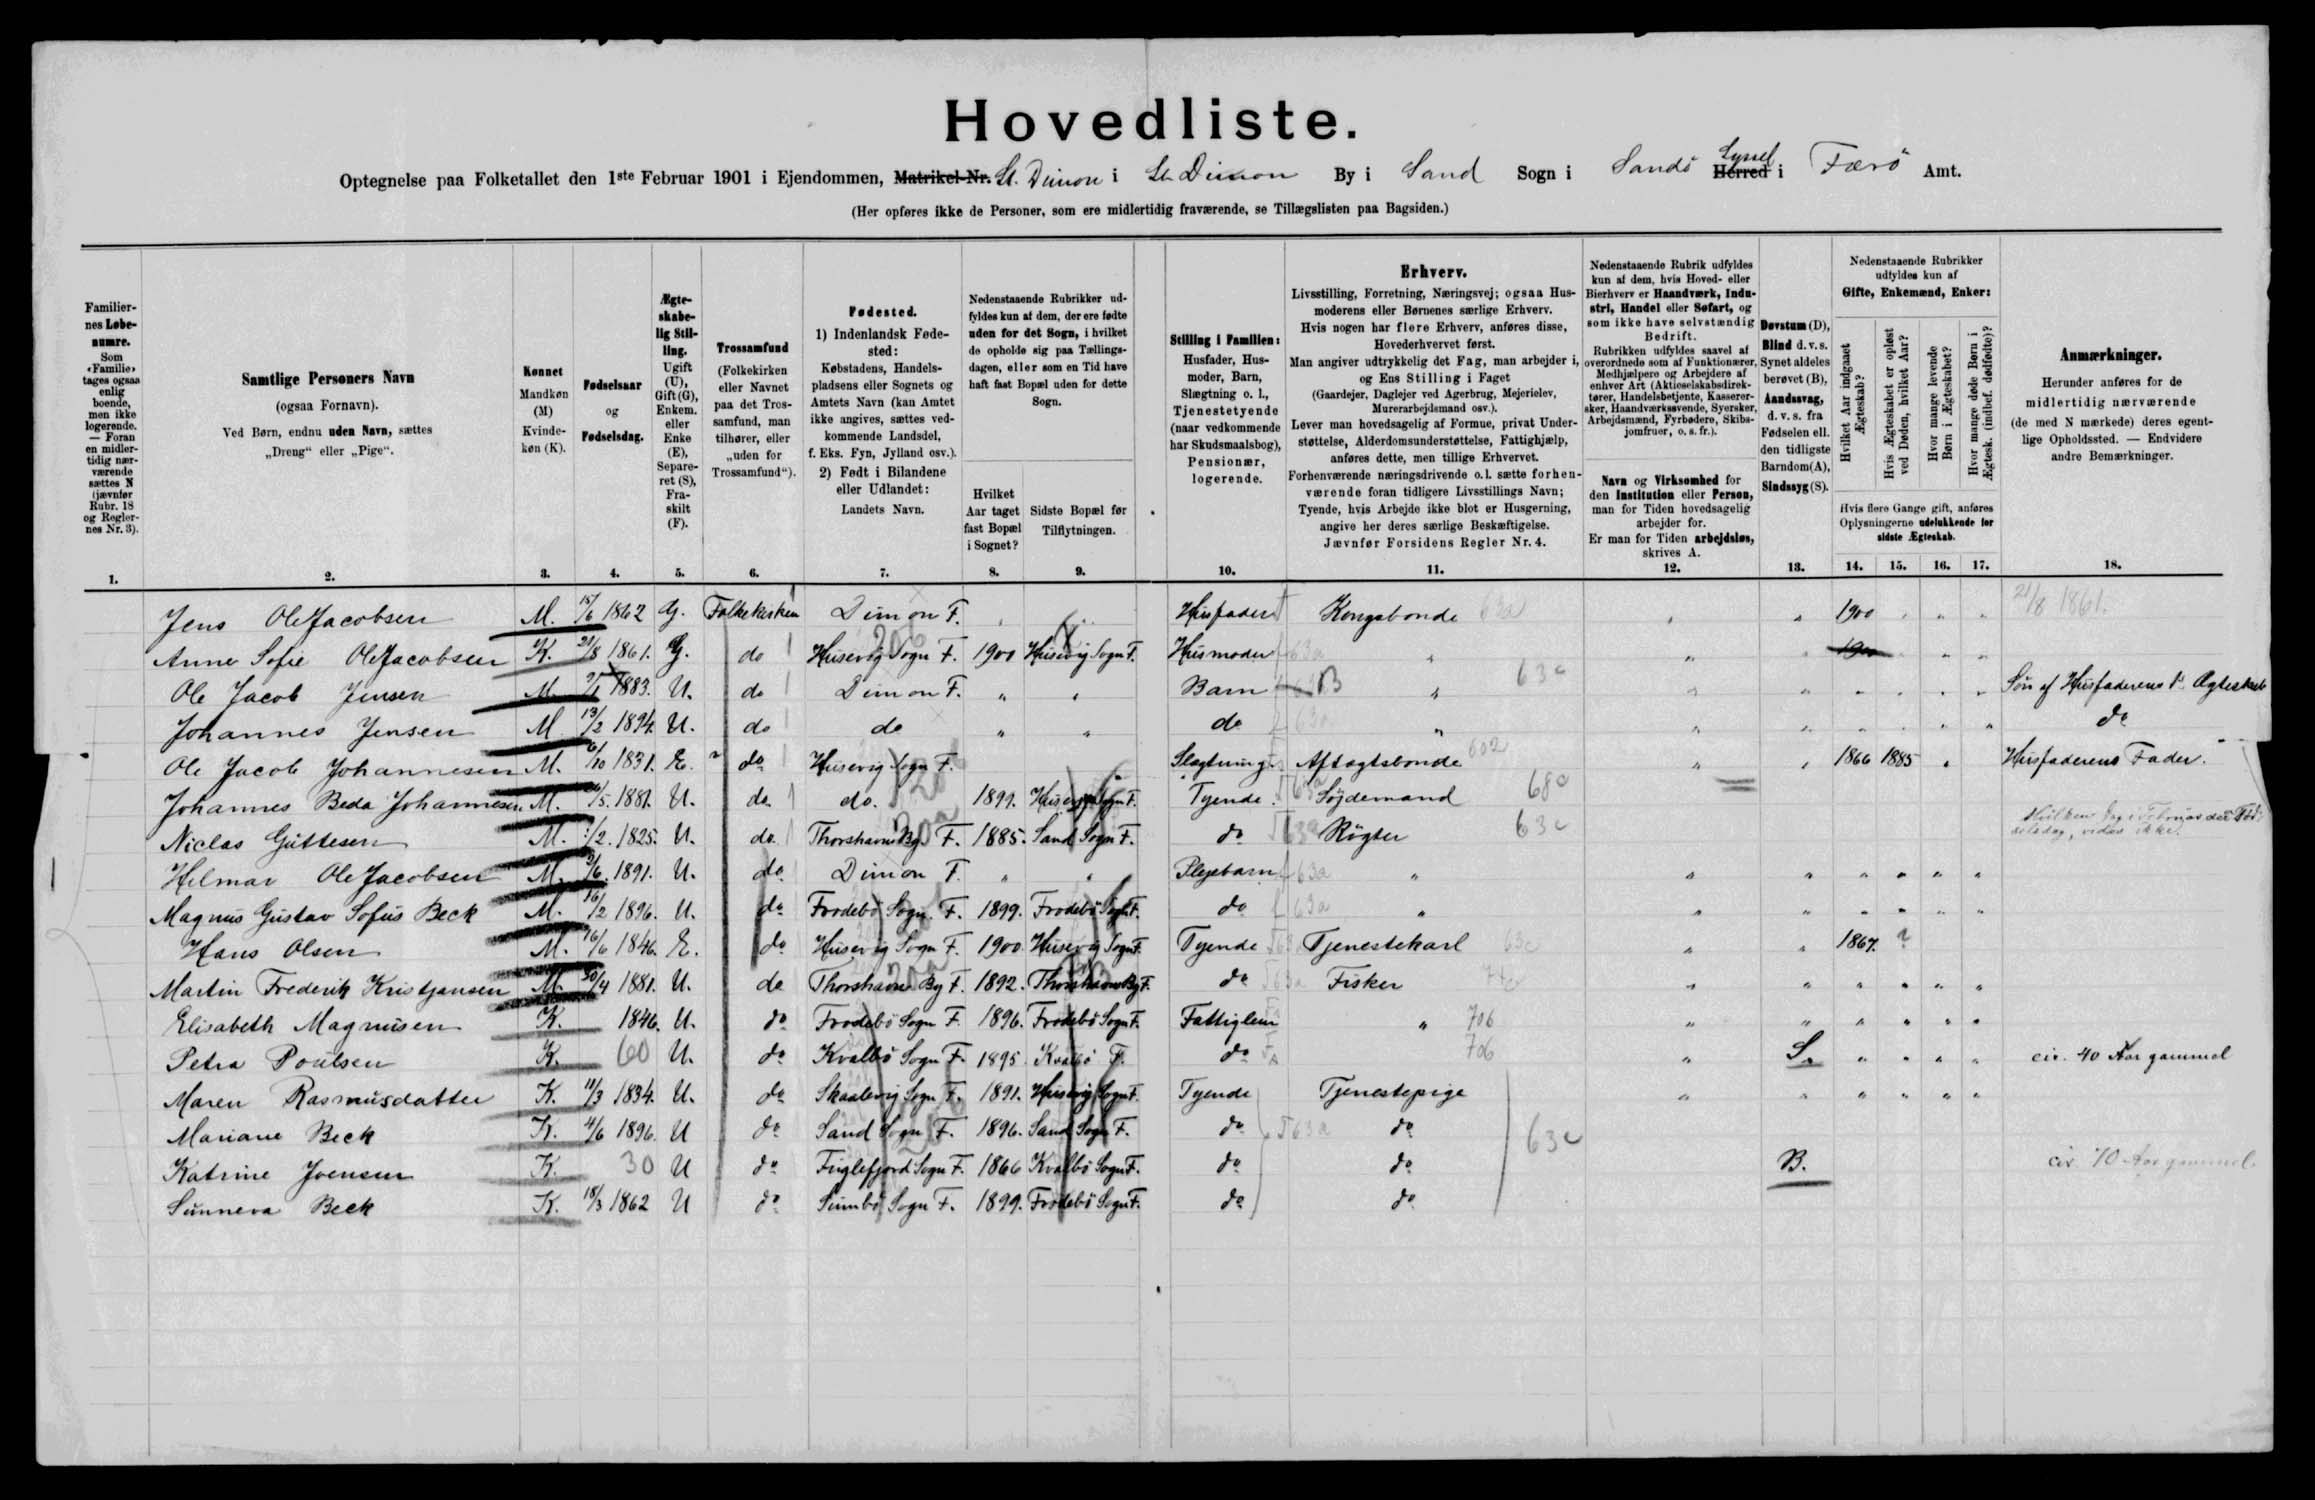 Hovedliste.
Optegnelse paa Folketallet den 1ste Februar 1901 i Ejendommen, Matrikel-Nr. St. Dimon i St. Dimon By i Sand Sogn i Sandö Herred Syssel i Færö Amt.
(Her opføres ikke de Personer, som ere midlertidig fraværende, se Tillægslisten paa Bagsiden.)
Familiernes Løbenumre.
Som «Familie» tages ogsaa enlig boende, men ikke logerende. — Foran en midlertidig nærværende sættes N (jævnfør Rubr. 18 og Reglernes Nr. 3).
Samtlige Personers Navn
(ogsaa Fornavn).
Ved Børn, endnu uden Navn, sættes „Dreng“ eller „Pige“.
Kønnet
Mandkøn (M) Kvindekøn (K).
Fødselsaar og Fødselsdag.
Ægteskabelig Stilling.
Ugift (U), Gift (G), Enkem. eller Enke (E), Separeret (S), Fraskilt (F).
Trossamfund
(Folkekirken eller Navnet paa det Trossamfund, man tilhører, eller „uden for Trossamfund“).
Fødested.
1) Indenlandsk Fødested:
Købstadens, Handelspladsens eller Sognets og Amtets Navn (kan Amtet ikke angives, sættes vedkommende Landsdel, f. Eks. Fyn, Jylland osv.).
2) Født i Bilandene eller Udlandet:
Landets Navn.
Nedenstaaende Rubrikker udfyldes kun af dem, der ere fødte uden for det Sogn, i hvilket de opholde sig paa Tællingsdagen, eller som en Tid have haft fast Bopæl uden for dette Sogn.
Hvilket Aar taget fast Bopæl i Sognet?
Sidste Bopæl før Tilflytningen.
Stilling i Familien:
Husfader, Husmoder, Barn, Slægtning o. l., Tjenestetyende (naar vedkommende har Skudsmaalsbog), Pensionær, logerende.
Erhverv.
Livsstilling, Forretning, Næringsvej; ogsaa Husmoderens eller Børnenes særlige Erhverv.
Hvis nogen har flere Erhverv, anføres disse, Hovederhvervet først.
Man angiver udtrykkelig det Fag, man arbejder i, og Ens Stilling i Faget
(Gaardejer, Daglejer ved Agerbrug, Mejerielev, Murerarbejdsmand osv.).
Lever man hovedsagelig af Formue, privat Understøttelse, Alderdomsunderstøttelse, Fattighjælp, anføres dette, men tillige Erhvervet.
Forhenværende næringsdrivende o. l. sætte forhenværende foran tidligere Livsstillings Navn;
Tyende, hvis Arbejde ikke blot er Husgerning, angive her deres særlige Beskæftigelse.
Jævnfør Forsidens Regler Nr. 4.
Nedenstaaende Rubrik udfyldes kun af dem, hvis Hoved- eller Bierhverv er Haandværk, Industri, Handel eller Søfart, og som ikke have selvstændig Bedrift.
Rubrikken udfyldes saavel af overordnede som af Funktionærer, Medhjælpere og Arbejdere af enhver Art (Aktieselskabsdirektører, Handelsbetjente, Kasserersker, Haandværkssvende, Syersker, Arbejdsmænd, Fyrbødere, Skibsjomfruer, o. s. fr.).
Navn og Virksomhed for den Institution eller Person, man for Tiden hovedsagelig arbejder for.
Er man for Tiden arbejdsløs, skrives A.
Døvstum (D), Blind d. v. s. Synet aldeles berøvet (B), Aandssvag, d. v. s. fra Fødselen ell. den tidligste Barndom (A), Sindssyg (S).
Nedenstaaende Rubrikker udfyldes kun af Gifte, Enkemænd, Enker:
Hvilket Aar indgaaet Ægteskab?
Hvis Ægteskabet er opløst ved Døden, hvilket Aar?
Hvor mange levende Børn i Ægteskabet?
Hvor mange døde Børn i Ægtesk. (indbef. dødfødte)?
Hvis flere Gange gift, anføres Oplysningerne udelukkende for sidste Ægteskab.
Anmærkninger.
Herunder anføres for de midlertidig nærværende (de med N mærkede) deres egentlige Opholdssted. — Endvidere andre Bemærkninger.
1. 2. 3. 4. 5. 6. 7. 8. 9. 10. 11. 12. 13. 14. 15. 16. 17. 18.
Jens OleJacobsen M. 18/6 1862 G. Folkekirken Dimon F. Husfader Kongsbonde 63a 1900 21/8 1861.
Anne Sofie OleJacobsen K. 21/8 1861. G. do Husevig Sogn F. 1900 Husevig Sogn F. Husmoder 63a " 1900
Ole Jacob Jensen M. 1883. U. do Dimon F. " " Barn " 63c Sön af Husfaderens 1ste Ægteskab
Johannes Jensen M. 13/2 1894. U. do do " " do 63a " do
Ole Jacob Johannesen M. 6/10 1831. E. do Husevig Sogn F. Slægtning Aftægtsbonde 602 1866 1885 Husfaderens Fader.
Johannes Beda Johannesen M. /5. 1881. U. do do. 1899. Husevig Sogn F. Tyende Söjdemand 68c
Niclas Guttesen M. /2. 1825. U. do Thorshavns By F. 1885. Sand Sogn F. do 63a Røgter 63c Hvilken Dag i Februar der Födselsdag, vides ikke.
Hilmar OleJacobsen M. /6. 1891. U. do Dimon F. " " Plejebarn 63a "
Magnus Gustav Sofus Beck M. 16/2 1896. U. do Frodebö Sogn F. 1899. Frodebö Sogn F. do 63a "
Hans Olsen M. 16/6 1846. E. do Husevig Sogn F. 1900 Husevig Sogn F. Tyende Tjenestekarl 63c 1867. ?
Martin Frederik Kristjansen M. 30/4 1881. U. do Thorshavns By F. 1892. Thorshavns By F. do 63a Fisker
Elisabeth Magnusen K. 1846. U. do Frodebö Sogn F. 1896. Frodebö Sogn F. Fattiglem " 706
Petra Poulsen K. 60 U. do Kvalbö Sogn F. 1895. Kvalbö F. do 706 S. cir. 40 Aar gammel
Maren Rasmusdatter K. 11/3 1834. U. do Skaalevig Sogn F. 1891. Husevig Sogn F. Tyende Tjenestepige
Mariane Beck K. 4/6 1896. U do Sand Sogn F. 1896. Sand Sogn F. do 63a do 63c
Katrine Joensen K. 30 U do Fuglefjord Sogn F. 1866 Kvalbö Sogn F. do do B. cir 70 Aar gammel.
Sunneva Beck K. 18/3 1862 U do Sumbö Sogn F. 1899. Frodebö Sogn F. do do